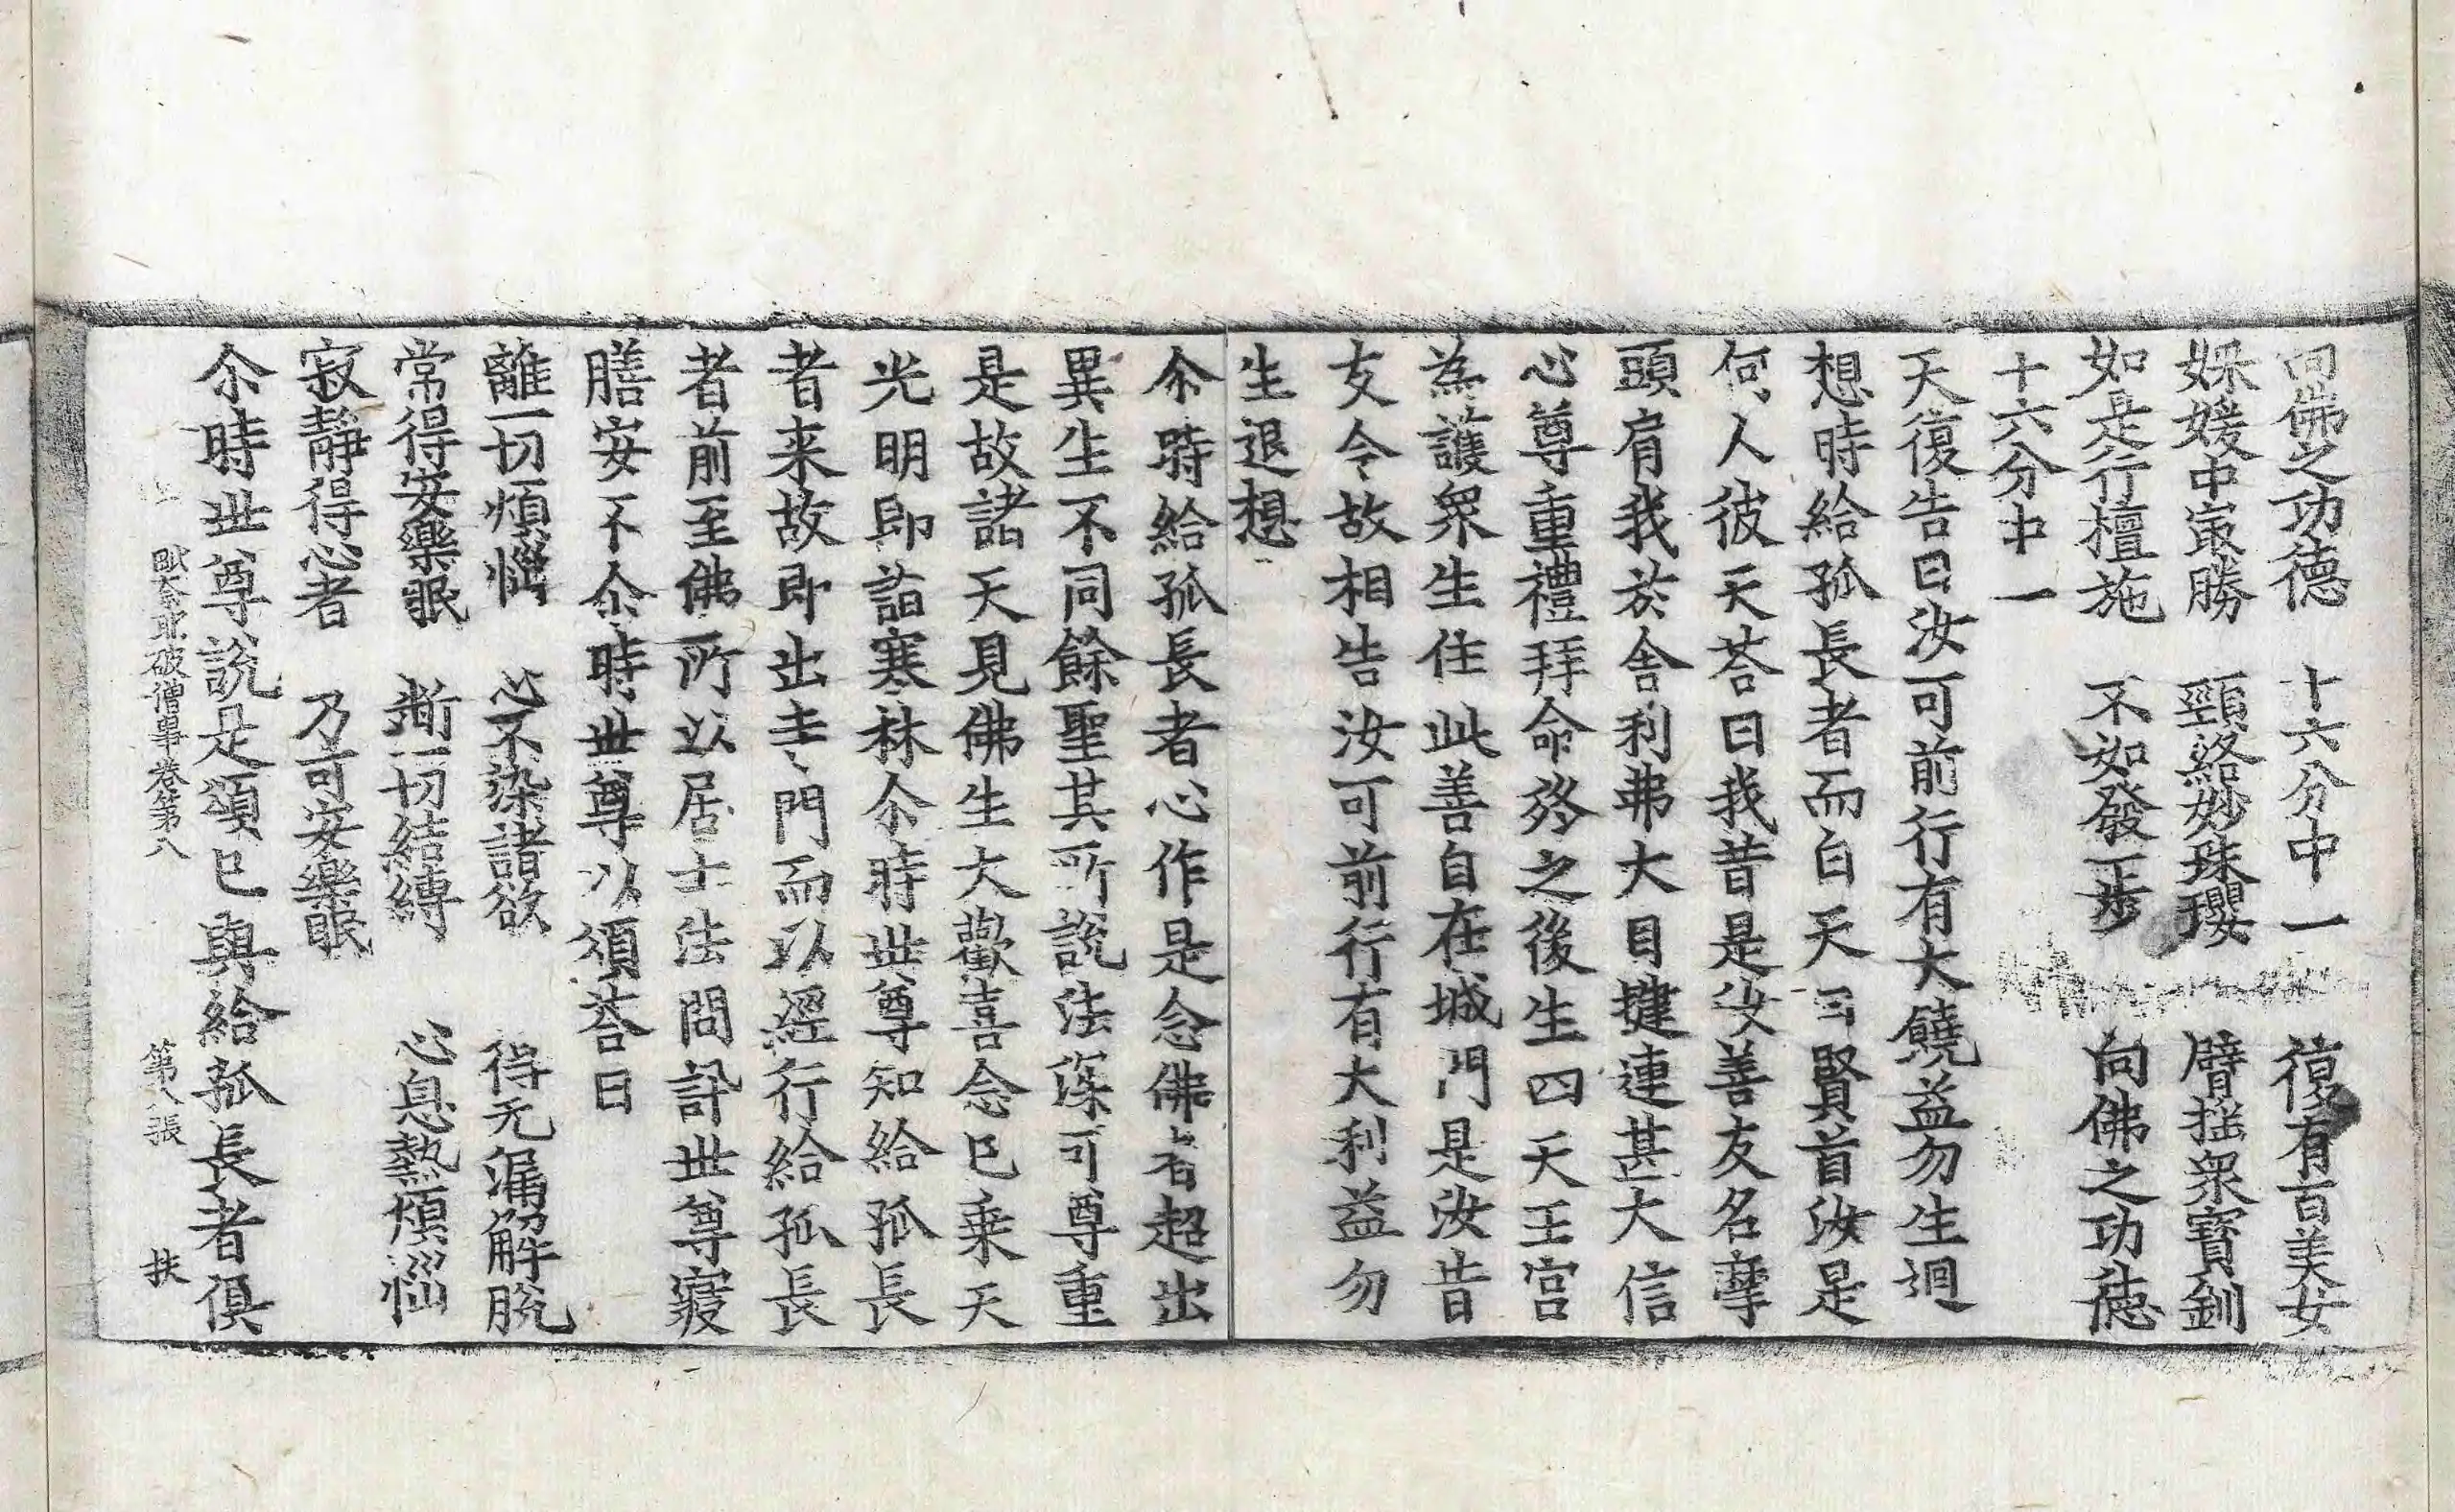 向佛之功德　十六分中一　復有百美女
婇媛中㝡勝　頸絡妙珠瓔　臂摇衆寳釧
如是行檀施　不如發一步　向佛之功德
十六分中一
天復告曰汝可前行有大饒益勿生迴
想時給孤長者而白天曰賢首汝是
何人彼天荅曰我昔是汝善友名摩
頭肩我於舍利弗大目揵連甚大信
心尊重禮拜命終之後生四天王宫
為護衆生住此善自在城門是汝昔
友今故相告汝可前行有大利益勿
生退想
尒時給孤長者心作是念佛者超出
異生不同餘聖其所說法深可尊重
是故諸天見佛生大歡喜念已乗天
光明即詣寒林尒時世尊知給孤長
者来故即出寺門而以經行給孤長
者前至佛所以居士法問訊世尊寢
膳安不尒時世尊以頌荅曰
離一切煩惱　心不染諸欲　得无漏解脫
常得安樂眠　斷一切結縛　心息熱煩惱
寂靜得心者　乃可安樂眠
尒時世尊說是頌已與給孤長者俱
破僧事卷第八　第八張　扶